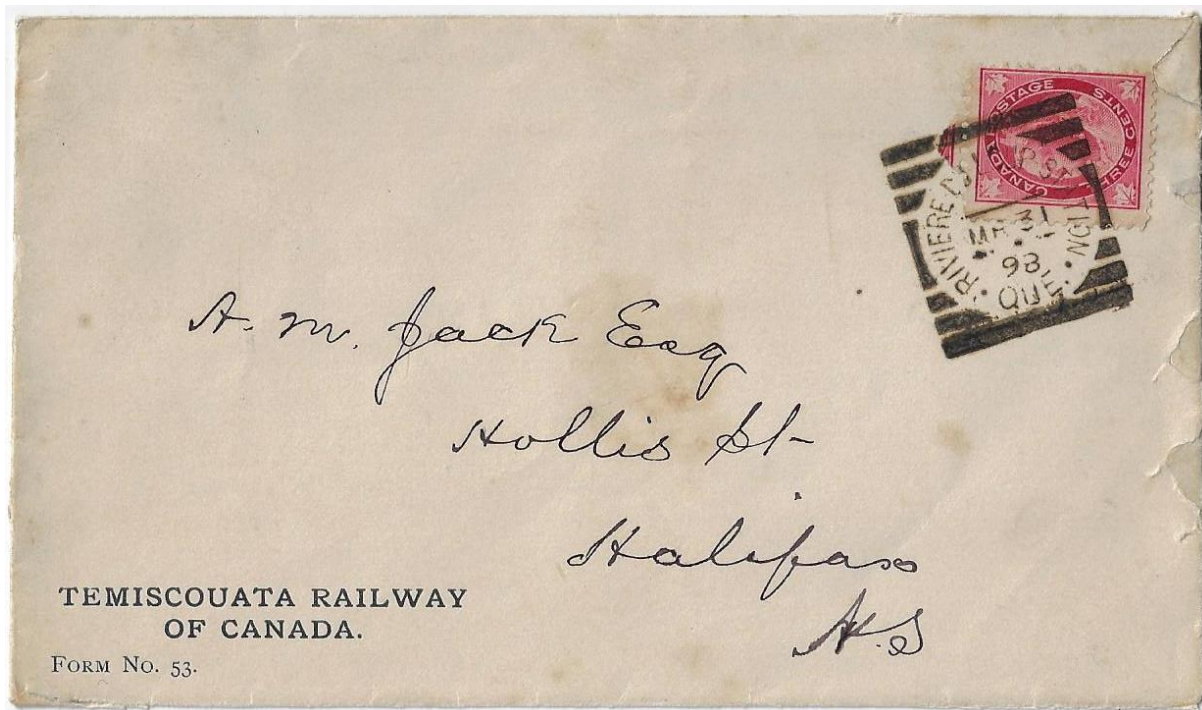 CANADA POSTAGE THREE CENTS
RIVIERE DU LOUP STATION
MR 31
98
QUE.
A. M. Jack Esq
Hollis St
Halifax
N.S
TEMISCOUATA RAILWAY
OF CANADA.
FORM NO. 53.